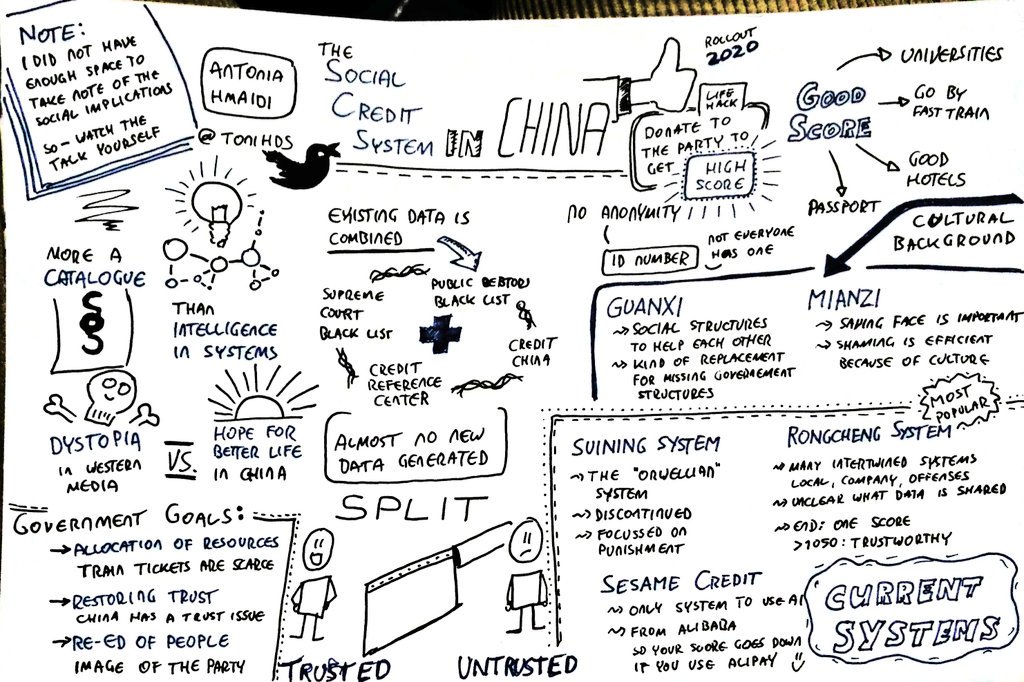 NOTE:
I DID NOT HAVE
ENOUGH SPACE TO
TAKE NOTE OF THE
SOCIAL IMPLICATIONS
SO - WATCH THE
TALK YOURSELF
ANTONIA
HMAIDI
@TONIHDS
THE
SOCIAL
CREDIT
SYSTEM IN CHINA
ROLLOUT
2020
LIFE
HACK
DONATE TO
THE PARTY TO
GET HIGH
SCORE
GOOD
SCORE
UNIVERSITIES
GO BY
FAST TRAIN
GOOD
HOTELS
PASSPORT
MORE A
CATALOGUE
§
THAN
INTELLIGENCE
IN SYSTEMS
EXISTING DATA IS
COMBINED
SUPREME
COURT
BLACK LIST
PUBLIC DEBTORS
BLACK LIST
CREDIT
CHINA
CREDIT
REFERENCE
CENTER
ALMOST NO NEW
DATA GENERATED
NO ANONYMITY
ID NUMBER
NOT EVERYONE
HAS ONE
CULTURAL
BACKGROUND
GUANXI
SOCIAL STRUCTURES
TO HELP EACH OTHER
KIND OF REPLACEMENT
FOR MISSING GOVERNEMENT
STRUCTURES
MIANZI
SAVING FACE IS IMPORTANT
SHAMING IS EFFICIENT
BECAUSE OF CULTURE
DYSTOPIA
IN WESTERN
MEDIA
VS.
HOPE FOR
BETTER LIFE
IN CHINA
GOVERNMENT GOALS:
ALLOCATION OF RESOURCES
TRAIN TICKETS ARE SCARCE
RESTORING TRUST
CHINA HAS A TRUST ISSUE
RE-ED OF PEOPLE
IMAGE OF THE PARTY
SPLIT
TRUSTED
UNTRUSTED
SUINING SYSTEM
THE "ORWELLIAN"
SYSTEM
DISCONTINUED
FOCUSSED ON
PUNISHMENT
MOST
POPULAR
RONGCHENG SYSTEM
MANY INTERTWINED SYSTEMS
LOCAL, COMPANY, OFFENSES
UNCLEAR WHAT DATA IS SHARED
END: ONE SCORE
>1050: TRUSTWORTHY
SESAME CREDIT
ONLY SYSTEM TO USE AI
FROM ALIBABA
SO YOUR SCORE GOES DOWN
IF YOU USE ALIPAY
CURRENT
SYSTEMS